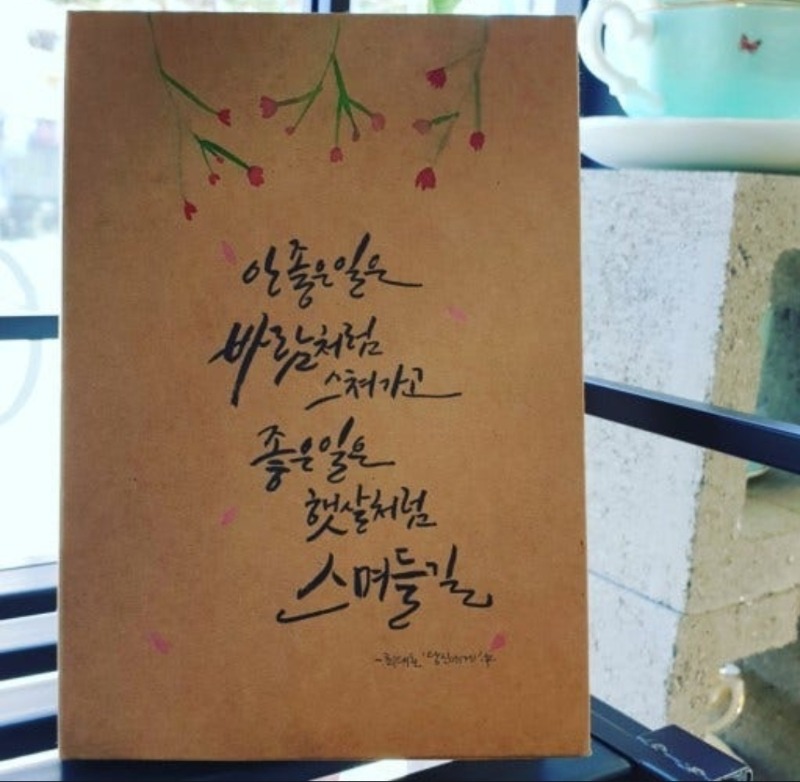 안 좋은 일은
바람처럼
스쳐가고
좋은 일은
햇살처럼
스며들길
- 최대호, '당신에게' 中